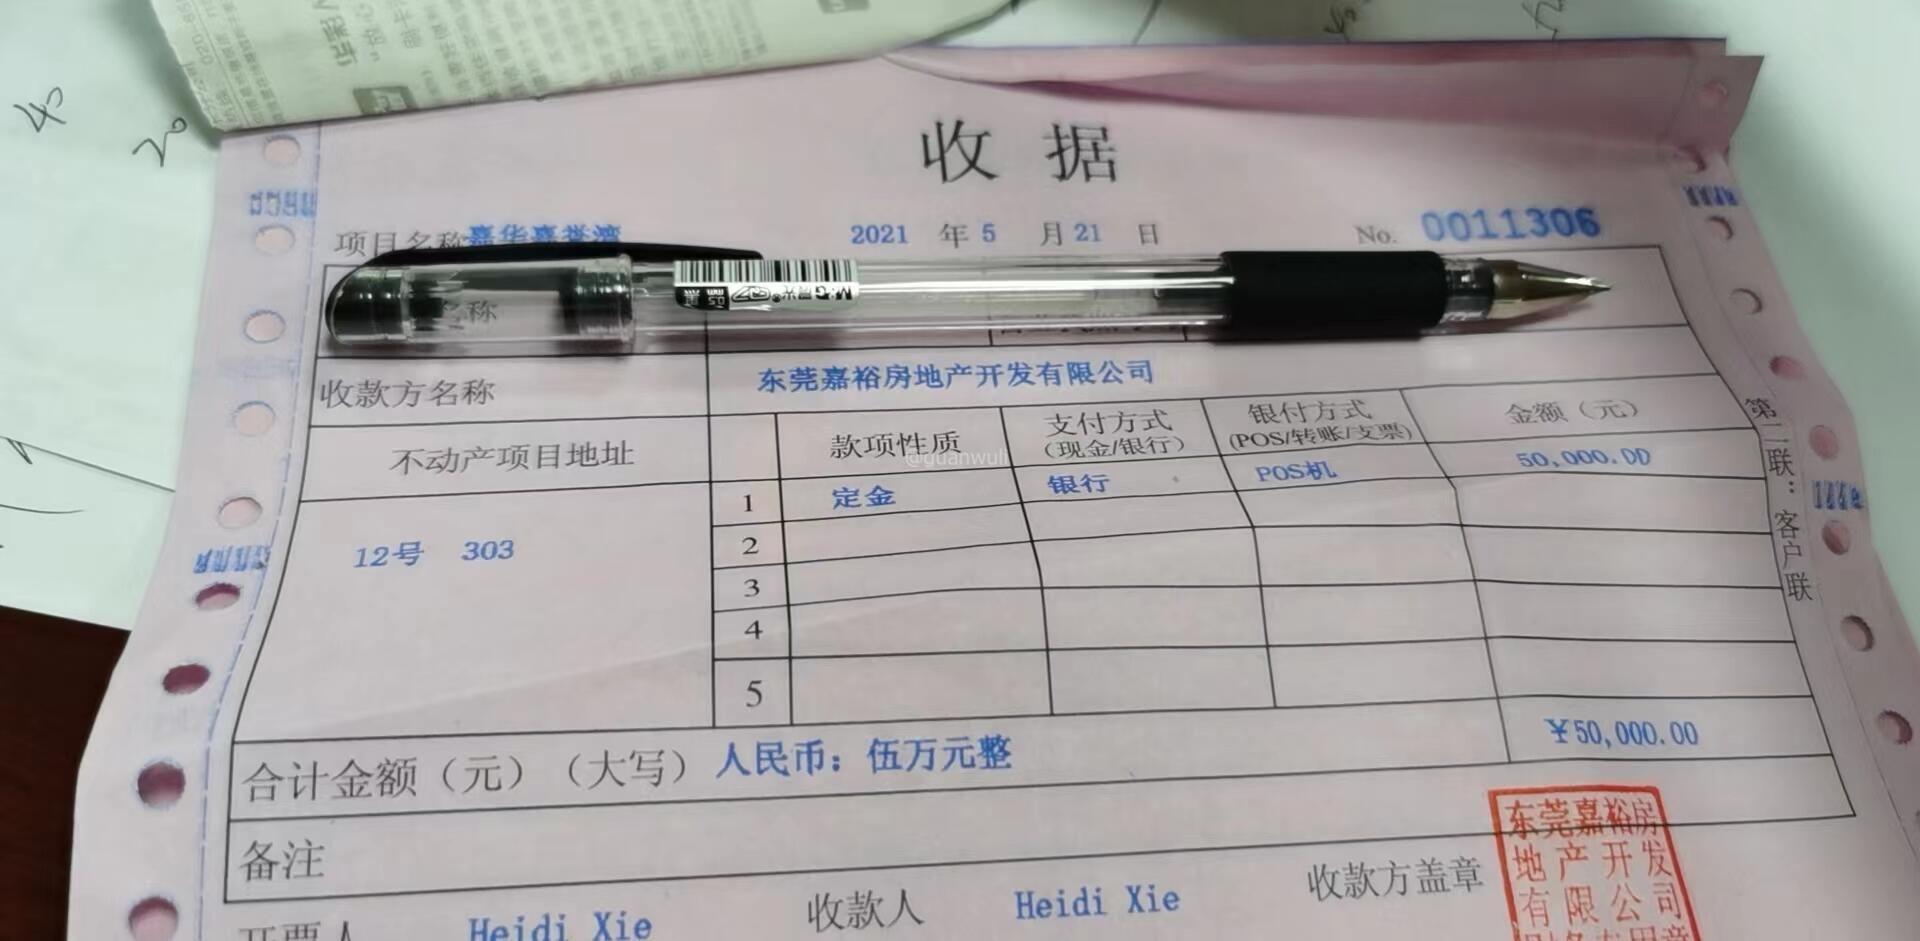 40
20
收 据
项目名称 嘉华嘉誉湾 2021 年 5 月 21 日 No. 0011306
名称
M&G 晨光 0.5 mm
收款方名称 东莞嘉裕房地产开发有限公司
不动产项目地址 款项性质 支付方式 (现金/银行) 银付方式 (POS/转账/支票) 金额（元）
@guanwuli
1 定金 银行 POS机 50,000.00
12号 303
2
3
4
5
合计金额（元）（大写） 人民币：伍万元整 ¥50,000.00
备注
开票人 Heidi Xie 收款人 Heidi Xie 收款方盖章
东莞嘉裕房
地产开发
有限公司
第二联：客户联